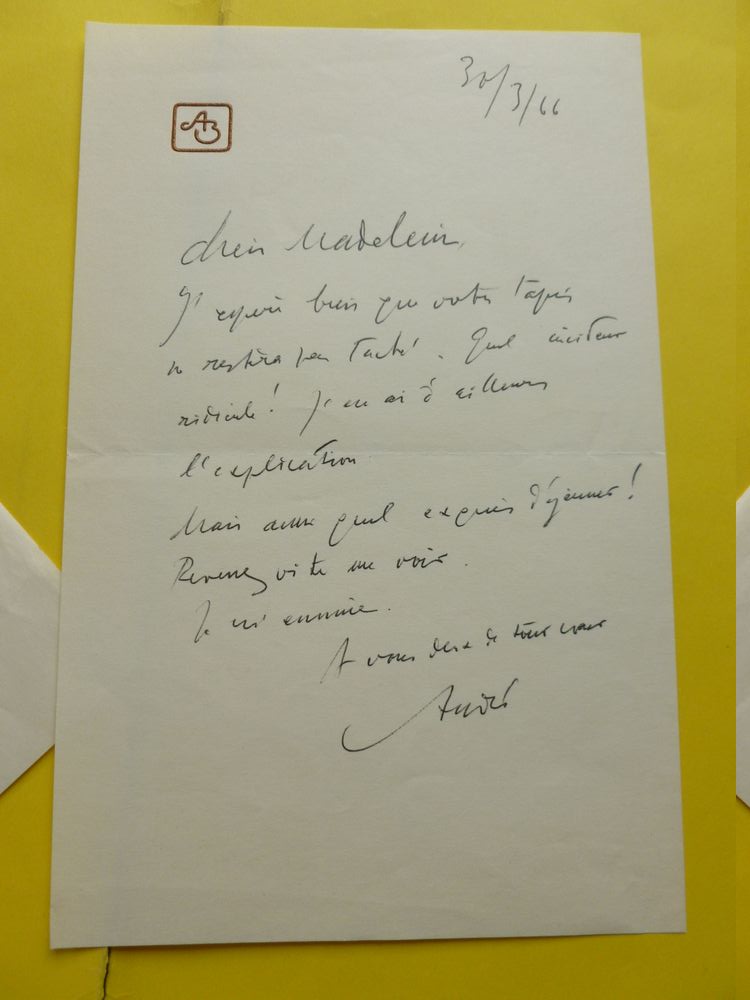 30/3/66
AB
Chère Madeleine,
J'espère bien que votre tapis
ne restera pas taché. Quel incident
ridicule! J'en ai d'ailleurs
l'explication.
Mais aussi quel exquis déjeuner!
Revenez vite me voir.
Je m'ennuie.
A vous deux de tout coeur
André